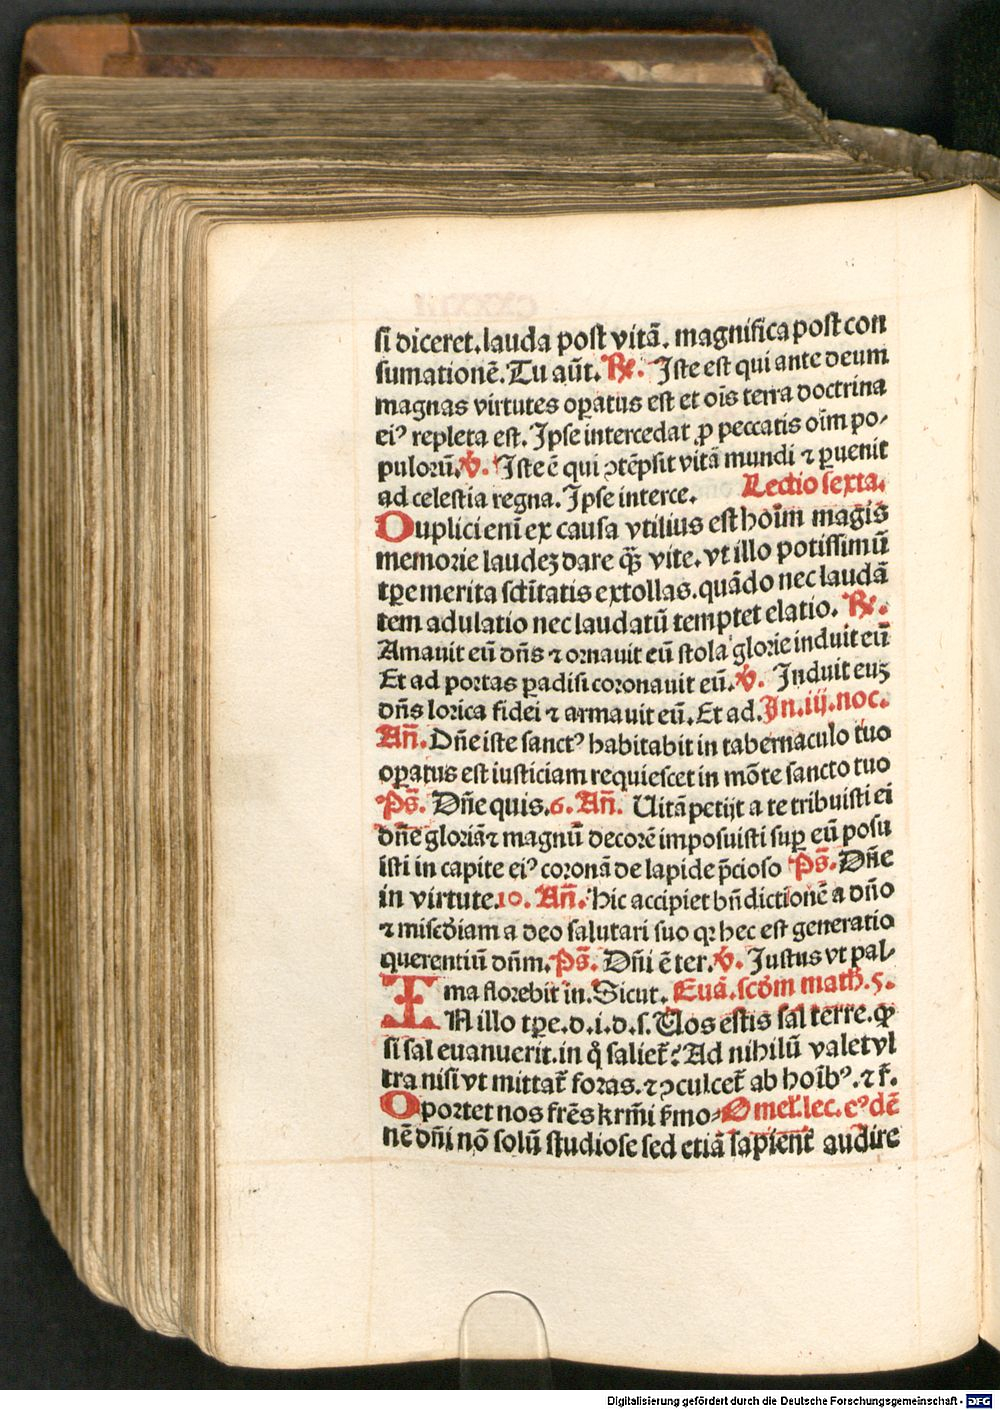 si diceret. lauda post vitā. magnifica post con
sumationē. Tu aūt. R̸. Iste est qui ante deum
magnas virtutes oꝑatus est et oīs terra doctrina
eiꝰ repleta est. Ipse intercedat ꝓ peccatis oīm po⸗
pulorū. V̇. Iste ē qui ↄtēpsit vitā mundi ⁊ ꝑuenit
ad celestia regna. Ipse interce. Lectio sexta.
Duplici enī ex causa vtilius est hoīm magis
memorie laudeꝫ dare qͣꝫ vite. vt illo potissimū
tꝑe merita sctītatis extollas. quādo nec laudā
tem adulatio nec laudatū temptet elatio. R̸.
Amauit eū dn̄s ⁊ ornauit eū stola glorie induit eū
Et ad portas ꝑadisi coronauit eū. V̇. Induit euꝫ
dn̄s lorica fidei ⁊ armauit eū. Et ad. In .iij. noc.
An̄. Dn̄e iste sanctꝰ habitabit in tabernaculo tuo
oꝑatus est iusticiam requiescet in mōte sancto tuo
Ps̄. Dn̄e quis. 6. An̄. Uitā petijt a te tribuisti ei
dn̄e gloriā ⁊ magnū decorē imposuisti suꝑ eū posu
isti in capite eiꝰ coronā de lapide p̄cioso Ps̄. Dn̄e
in virtute. 10. An̄. Hic accipiet bn̄dictionē a dn̄o
⁊ misc̄diam a deo salutari suo qꝛ hec est generatio
querentiū dn̄m. Ps̄. Dn̄i ē ter. V̇. Justus vt pal⸗
ma florebit in. Sicut. Euā. scd̄m math. 5.
IN illo tꝑe. d. i. d. s. Uos estis sal terre. ꝙ
si sal euanuerit. in q̊ salietˀ? Ad nihilū valet vl
tra nisi vt mittatˀ foras. ⁊ ↄculcetˀ ab hoībꝰ. ⁊ rˀ.
Oportet nos fr̄es kr̄mi ẜmo⸗ Omel. lec. eꝰdē
nē dn̄i nō solū studiose sed etiā sapientˀ audire
Digitalisierung gefördert durch die Deutsche Forschungsgemeinschaft - DFG